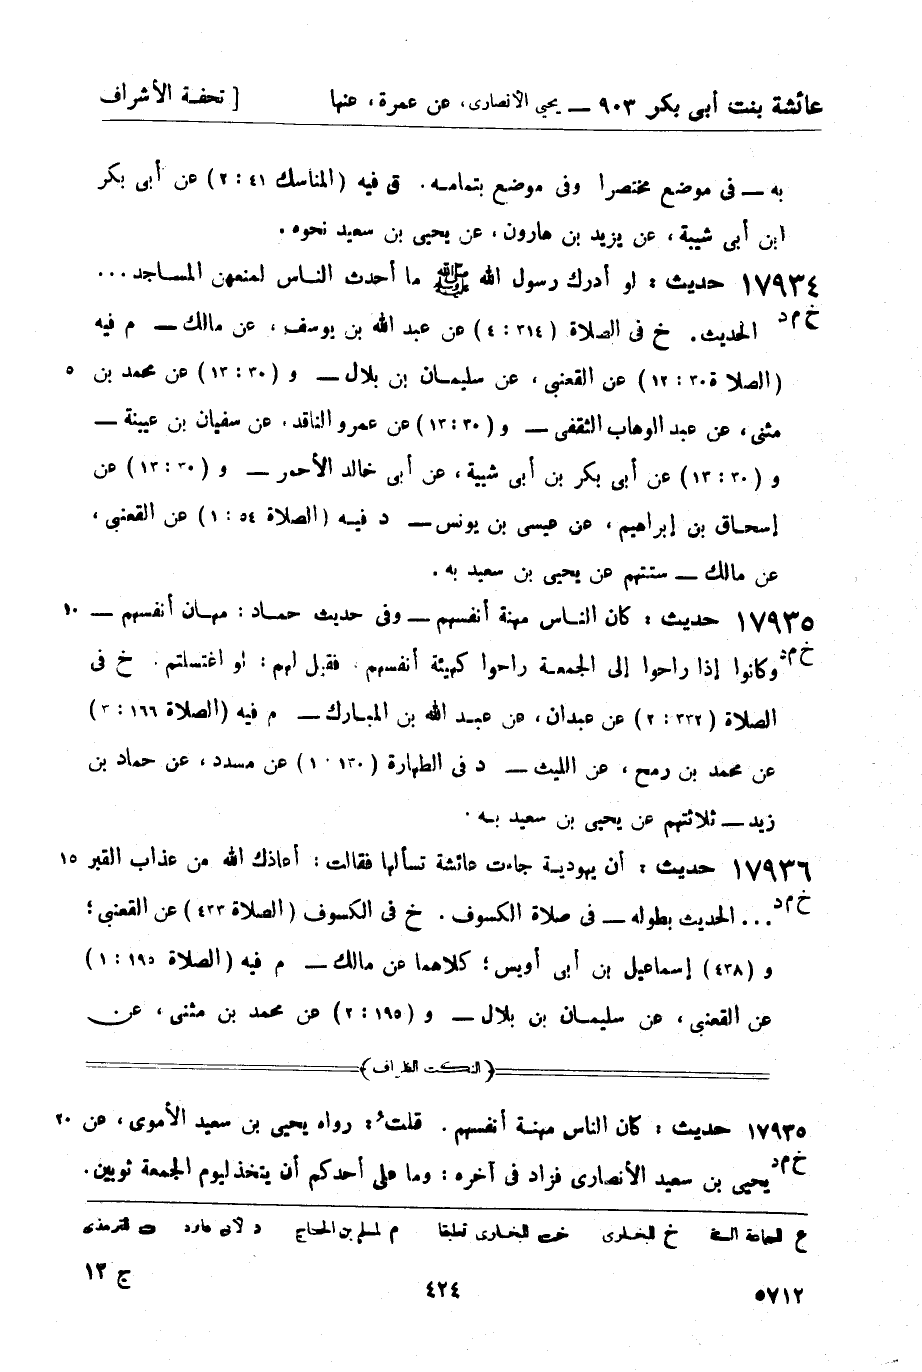 عائشة بنت أبى بكر ٩٠٣ — يحيى الأنصارى، عن عمرة، عنها [ تحفة الأشراف
به — فى موضع مختصرا وفى موضع بتمامه. ق فيه (المناسك ٤١ : ٢) عن أبى بكر
ابن أبى شيبة، عن يزيد بن هارون، عن يحيى بن سعيد نحوه.
١٧٩٣٤ حديث : لو أدرك رسول الله ﷺ ما أحدث الناس لمنعهن المساجد...
خ م د الحديث. خ فى الصلاة (٣١٤ : ٤) عن عبد الله بن يوسف، عن مالك — م فيه
(الصلاة ٣٠ : ١٢) عن القعنبى، عن سليمان بن بلال — و (٣٠ : ١٣) عن محمد بن ٥
مثنى، عن عبد الوهاب الثقفى — و (٣٠ : ١٣) عن عمرو الناقد، عن سفيان بن عيينة —
و (٣٠ : ١٣) عن أبى بكر بن أبى شيبة، عن أبى خالد الأحمر — و (٣٠ : ١٣) عن
إسحاق بن إبراهيم، عن عيسى بن يونس — د فيه (الصلاة ٥٤ : ١) عن القعنبى،
عن مالك — ستتهم عن يحيى بن سعيد به.
١٧٩٣٥ حديث : كان الناس مهنة أنفسهم — وفى حديث حماد : مهان أنفسهم — ١٠
خ م د وكانوا إذا راحوا إلى الجمعة راحوا كهيئة أنفسهم. فقيل لهم : لو اغتسلتم. خ فى
الصلاة (٣٣٢ : ٢) عن عبدان، عن عبد الله بن المبارك — م فيه (الصلاة ١٦٦ : ٣)
عن محمد بن رمح، عن الليث — د فى الطهارة (١٣٠ : ١) عن مسدد، عن حماد بن
زيد — ثلاثتهم عن يحيى بن سعيد به.
١٧٩٣٦ حديث : أن يهودية جاءت عائشة تسألها فقالت : أعاذك الله من عذاب القبر ١٥
خ م د ... الحديث بطوله — فى صلاة الكسوف. خ فى الكسوف (الصلاة ٤٣٣) عن القعنبى؛
و (٤٣٨) إسماعيل بن أبى أويس؛ كلاهما عن مالك — م فيه (الصلاة ١٩٥ : ١)
عن القعنبى، عن سليمان بن بلال — و (١٩٥ : ٢) عن محمد بن مثنى، عن
(النكت الظراف)
١٧٩٣٥ حديث : كان الناس مهنة أنفسهم. قلتُ : رواه يحيى بن سعيد الأموى، عن ٢٠
خ م د يحيى بن سعيد الأنصارى فزاد فى آخره : وما على أحدكم أن يتخذ ليوم الجمعة ثوبين.
ع للجماعة الستة خ للبخارى خت للبخارى تعليقا م لمسلم بن الحجاج د لأبى داود ت للترمذى
٥٧١٢ ٤٢٤ ج ١٢